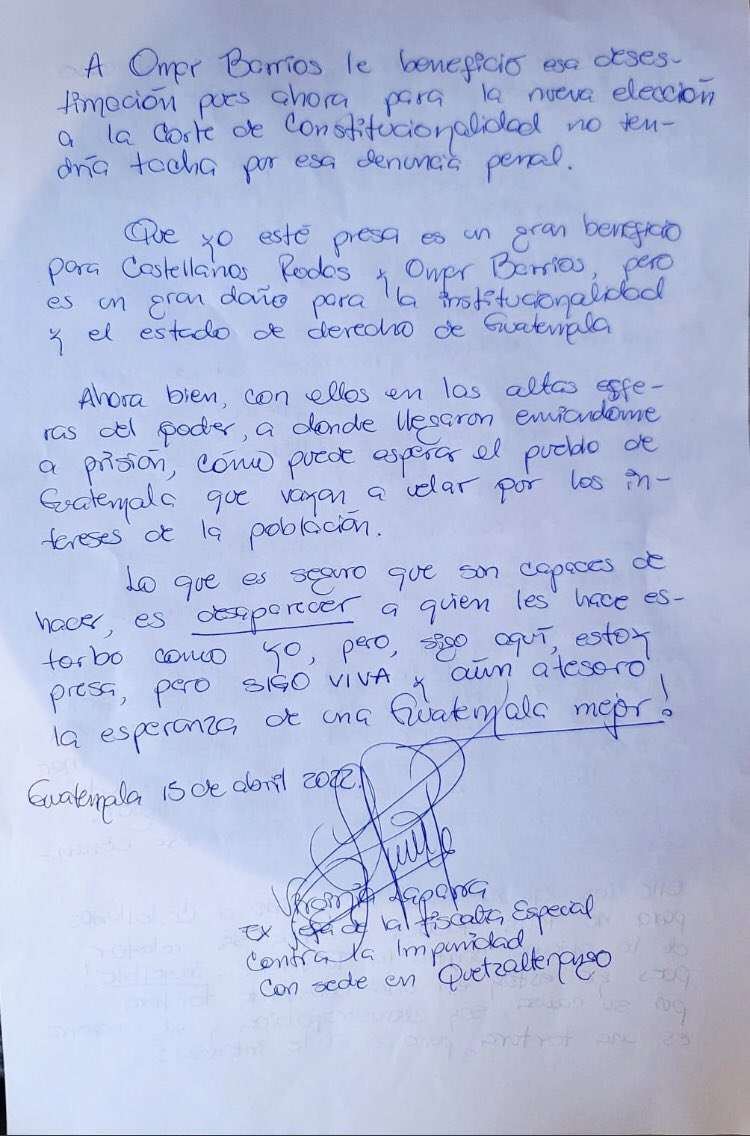 A Omar Barrios le beneficio esa deses-
timación pues ahora para la nueva elección
a la Corte de Constitucionalidad no ten-
dría tacha por esa denuncia penal.
Que yo esté presa es un gran beneficio
para Castellanos Rodas y Omar Barrios, pero
es un gran daño para la institucionalidad
y el estado de derecho de Guatemala
Ahora bien, con ellos en las altas esfe-
ras del poder, a donde llegaron enviandome
a prisión, cómo puede esperar el pueblo de
Guatemala que vayan a velar por los in-
tereses de la población.
Lo que es seguro que son capaces de
hacer, es desaparecer a quien les hace es-
torbo como yo, pero, sigo aquí, estoy
presa, pero SIGO VIVA y aún atesoro
la esperanza de una Guatemala mejor!
Guatemala 15 de abril 2022.
Virginia Laparra
Ex Jefa de la Fiscalía Especial
Contra la Impunidad
Con sede en Quetzaltenango